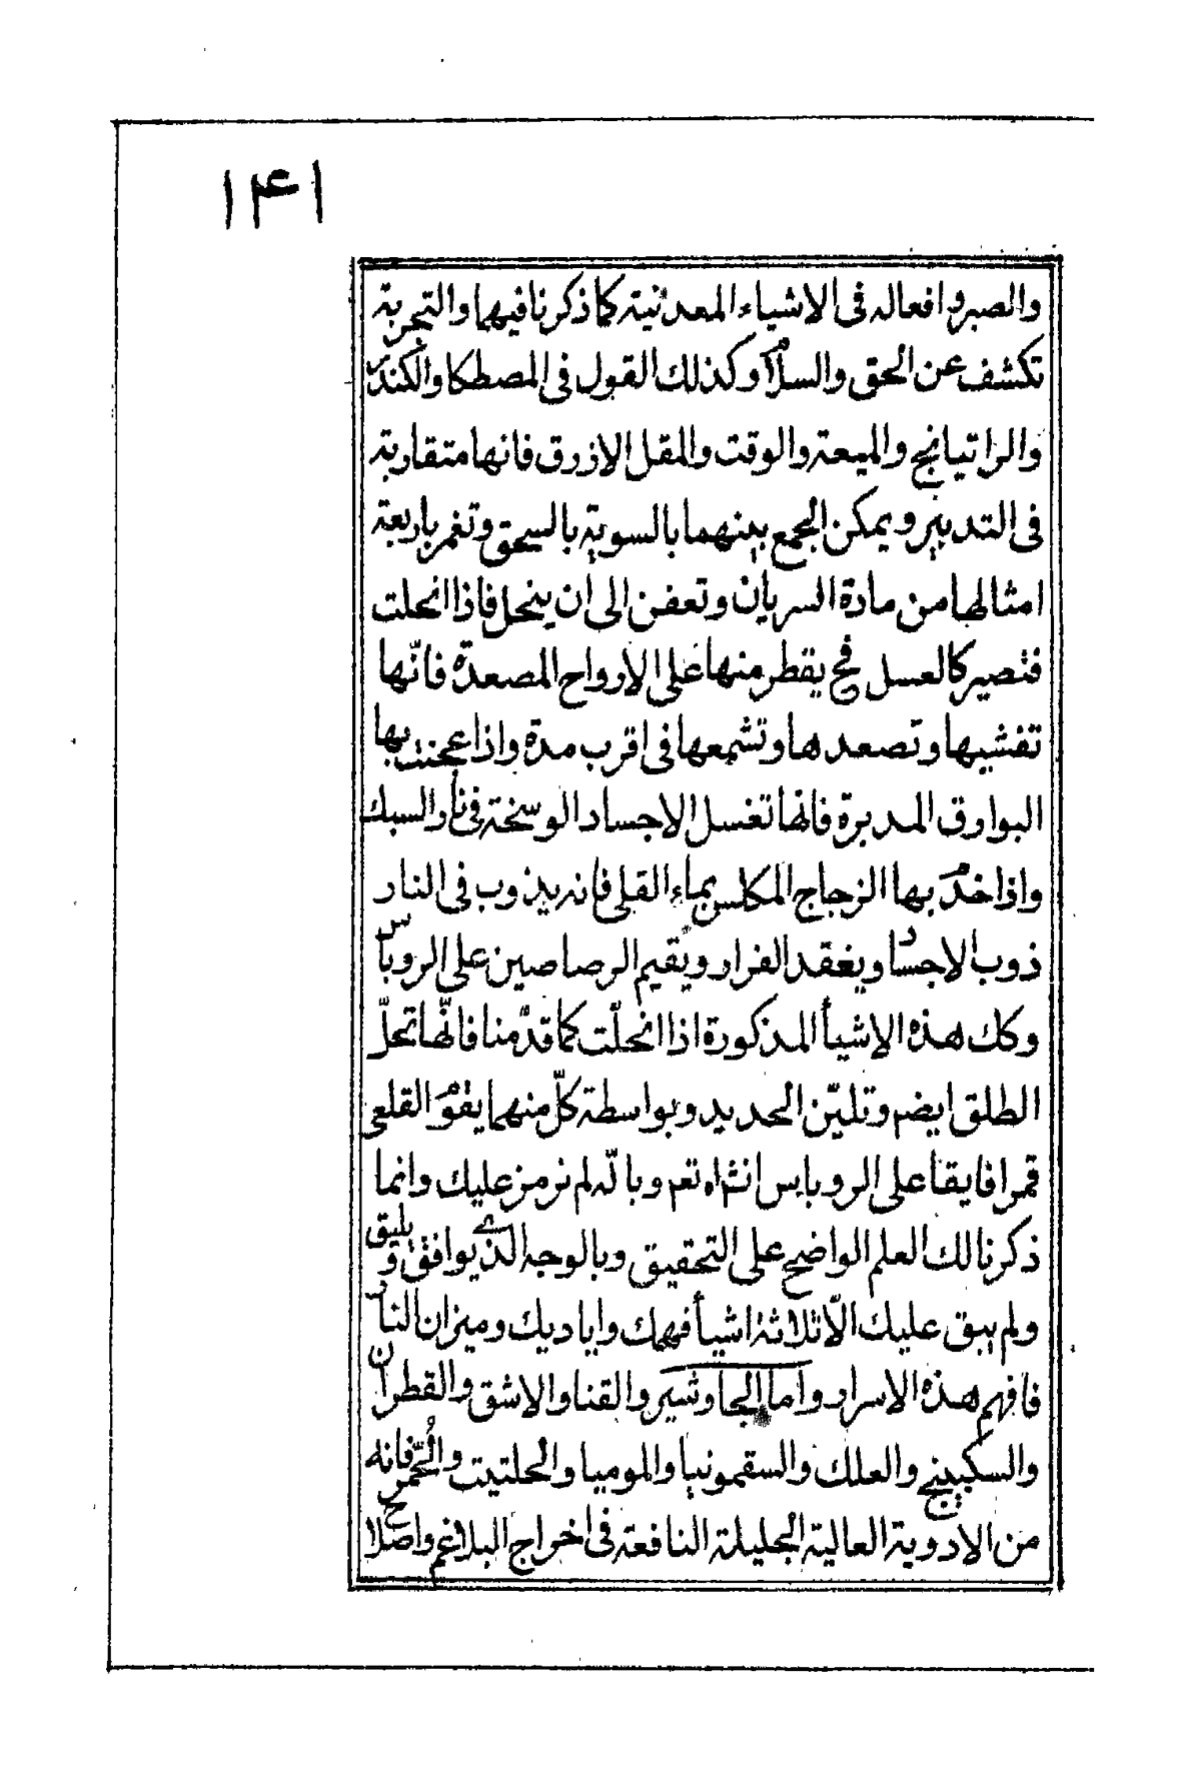 ۱۴۱
والصبر وافعاله فى الاشياء المعدنية كما ذكرنا فيهما والتجربة
تكشف عن الحق والسلام وكذلك القول فى المصطكا والكندر
والراتيانج والميعة والوقت والمقل الازرق فانها متقاربة
فى التدبير ويمكن الجمع بينهما بالسوية بالسحق وتغمر باربعة
امثالها من مادة السريان وتعفن الى ان ينحل فاذا انحلت
فتصير كالعسل فح يقطر منها على الارواح المصعدة فانّها
تفشيها وتصعدها وتشمعها فى اقرب مدة واذا عجنت بها
البوارق المدبرة فانها تغسل الاجساد الوسخة فى نار السبك
واذا خدم بها الزجاج المكلس بماء القلى فانه يذوب فى النار
ذوب الاجساد ويغقد الفرار ويقيم الرصاصين على الروباس
وكك هذه الاشيأ المذكورة اذا انحلّت كما قدّمنا فانّها تحلّ
الطلق ايضم وتليّن الحديد وبواسطة كلّ منهما يقوم القلعى
قمرا فايقا على الروباس انشاه تعم وبالّه لم نرمز عليك وانما
ذكرنا لك العلم الواضح على التحقيق وبالوجه الذى يوافق ويليق
ولم يبق عليك الّا ثلاثة اشيأ فهمك واياديك وميزان النار
فافهم هذه الاسرار واما الجاوشير والقنا والاشق والقطران
والسكبينج والعلك والسقمونيا والموميا والحلتيت والخّمر فانه
من الادوية العالية الجليلة النافعة فى اخراج البلاغم واصلاح